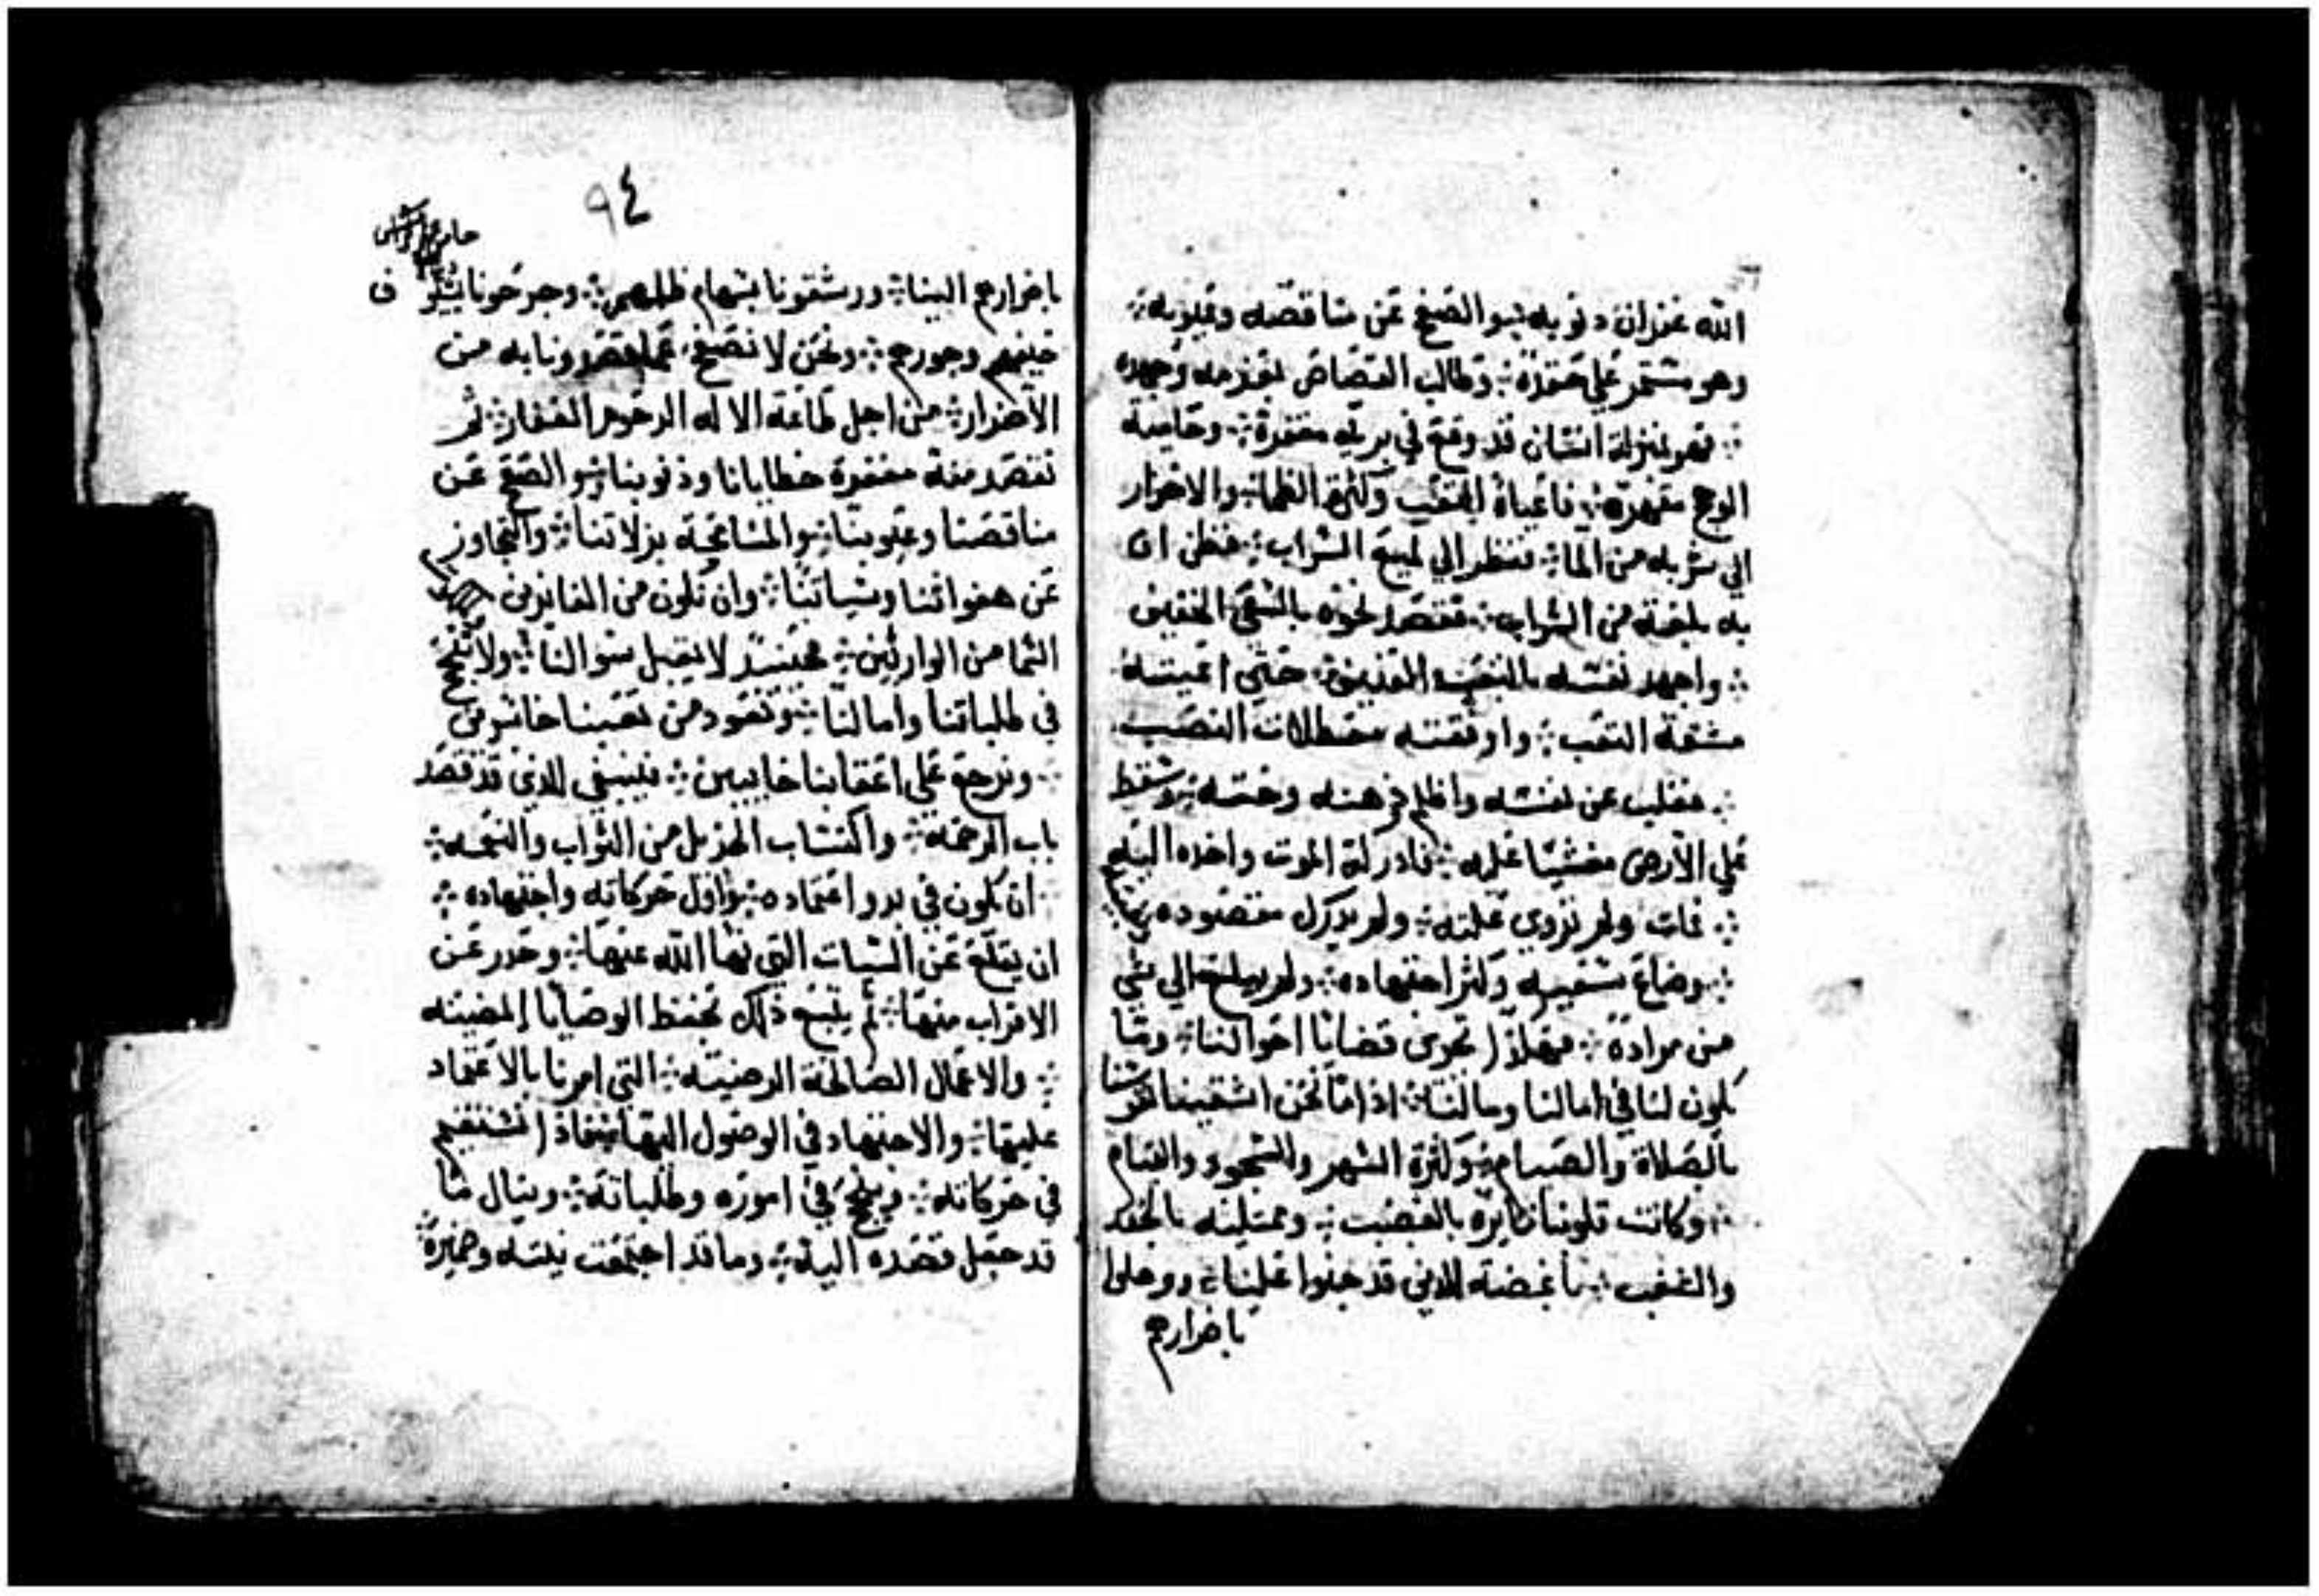 الله غفران دنوبه ÷ والصفح عن مناقصه وعيوبه ÷
وهو مستمر علي حقده ÷ وطالب القصاص بعزمه وجهده
÷ فهو بمنزلة انسان قد وقع في بريه مقفرة ÷ وحاميه
الوهج مقهره ÷ فاعياه التعب وكثرة الظما ÷ والاضرار
الي شربه من الما ÷ فنظر الي لميع السراب ÷ فظن ان
به بلغته من الشراب ÷ فقصد نحوه بالسعي الحفيف
÷ واجهد نفسه بالتعب العنيف ÷ حتي اعيته
مشقة التعب ÷ واوقفته معطلات النصب
÷ فغلب عن نفسه واظلم دهنه وحسه ÷ وسقط
علي الارض مغشيا عليه ÷ فادركه الموت واخده اليه
÷ فمات ولم تروي غلته ÷ ولم يدرك مقصوده
÷ وضاع سعيه وكثر اجتهاده ÷ ولم يبلغ الي شي
من مراده ÷ فهكذا تجري قضايا احوالنا ÷ وما
يكون لنا في امالنا ومالنا ÷ ادا ما نحن اشقينا نفوسنا
بالصلاة والصيام ÷ وكثرة السهر والسجود والقيام
÷ وكانت قلوبنا نايره بالغضب ÷ وممتليه بالحقد
والغضب ÷ باغضته للدين قد جنوا علينا ÷ ووصلوا
باضرارهم
٩٤
باضرارهم الينا ÷ ورشقونا بسهام ظلمهم ÷ وجرحونا بسيوف
حيفهم وجورهم ÷ ونحن لا نصفح عما قصدونا به من
الاضرار ÷ من اجل طاعة الاله الرحوم الغفار ÷ ثم
نقصد منه مغفرة خطايانا ودنوبنا ÷ والصفح عن
مناقصنا وعيوبنا ÷ والمسامحة بزلاتنا ÷ والتجاوز
عن هفواتنا وسياتنا ÷ وان نكون من الفايزين
السما من الوارثين ÷ فحينيد لا يقبل سوالنا ÷ ولا ننجح
في طلباتنا وامالنا ÷ ونعود من تعبنا خاسرين
÷ ونرجع علي اعقابنا خايبين ÷ فينبغي للدي قد قصد
باب الرحمة ÷ واكتساب الجزيل من الثواب والنعمه ÷
ان يكون في بدو اعتماده ÷ واول حركاته واجتهاده ÷
ان يقلع عن السيات التي نها الله عنها ÷ وحدر عن
الاقتراب منها ÷ ثم يتبع ذلك بحفظ الوصايا المضيه
÷ والاعمال الصالحة الرضيه ÷ التي امرنا بالاعتماد
عليها ÷ والاجتهاد في الوصول اليها ÷ فادا استقيم
في حركاته ÷ ونجح في اموره وطلباته ÷ وينال ما
قد جعل قصده اليه ÷ وما قد اجتمعت نيته وضميره